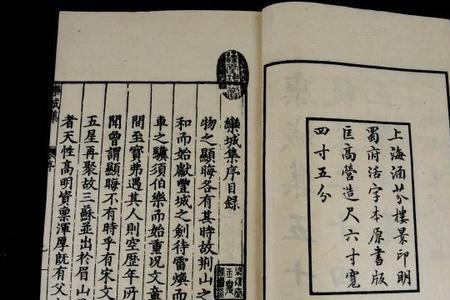 上海涵芬樓景印明
蜀府活字本原書版
匡高營造尺六寸寬
四寸五分
欒城集序目錄
物之顯晦各有其時故荊山之
和而始獻豐城之劍待雷煥而
車之驥須伯樂而始重况文章
間至寳弗遇其人則空歴年所
聞曾謂顯晦不有時乎有宋文
五星再聚故三蘇並出於眉山
者天性高明資稟渾厚既有父
欒城集